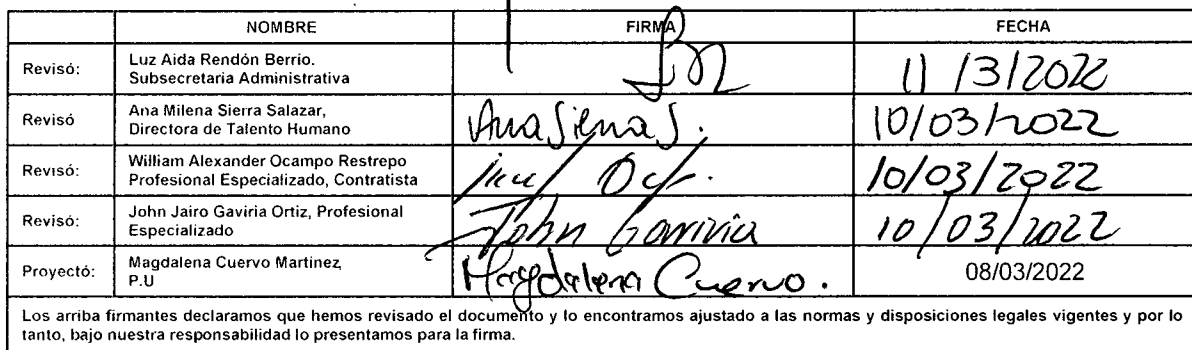 NOMBRE FIRMA FECHA
Revisó: Luz Aida Rendón Berrio. 11/3/2022
Subsecretaria Administrativa
Revisó Ana Milena Sierra Salazar, Ana Sierra S. 10/03/2022
Directora de Talento Humano
Revisó: William Alexander Ocampo Restrepo 10/03/2022
Profesional Especializado, Contratista
Revisó: John Jairo Gaviria Ortiz, Profesional John Gaviria 10/03/2022
Especializado
Proyectó: Magdalena Cuervo Martinez, Magdalena Cuervo. 08/03/2022
P.U
Los arriba firmantes declaramos que hemos revisado el documento y lo encontramos ajustado a las normas y disposiciones legales vigentes y por lo
tanto, bajo nuestra responsabilidad lo presentamos para la firma.